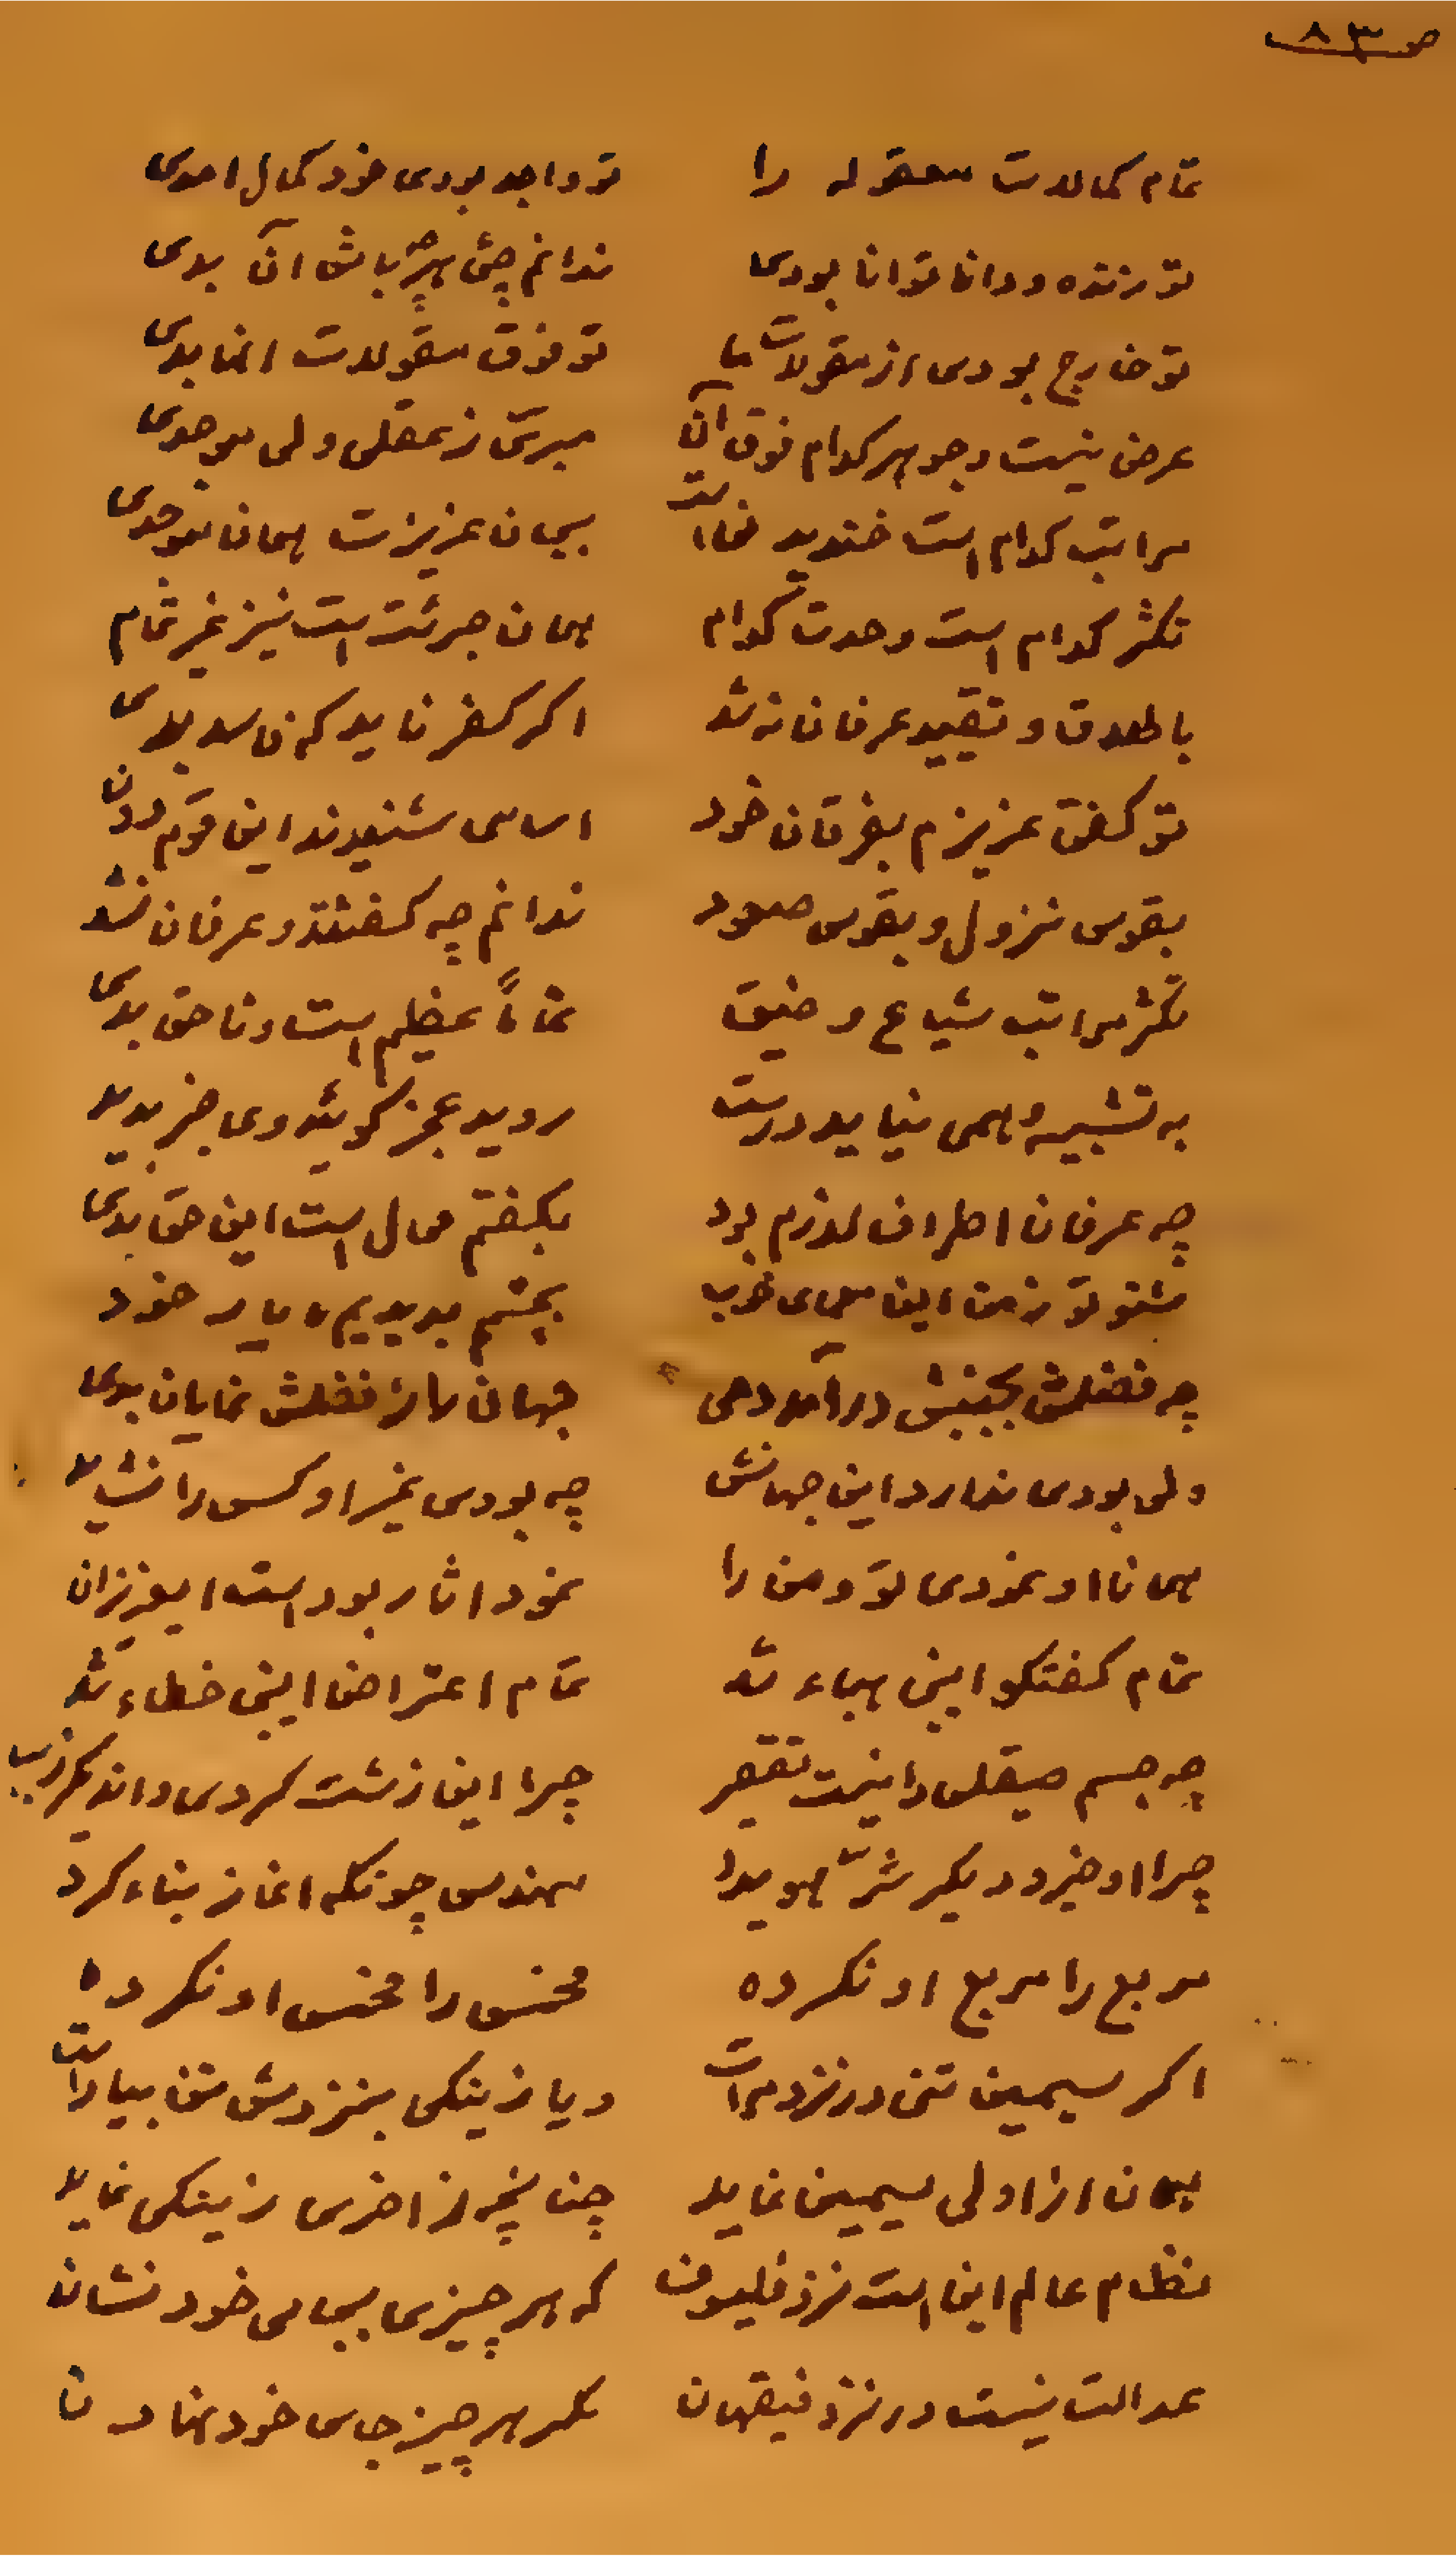 ص ۸۳
تمام کمالات معقوله را تو واجد بودی خود کمال احدی
تو زنده و دانا توانا بودی ندانم چئی هرچه باش آن بدی
تو خارج بودی از مقولات ما تو فوق مقولات انها بدی
عرض نیست وجوهر کدام فوق آن مبری ز عقلی ولی موجدی
مراتب کدام است خندید نمااست بیجان عزیزت همان موجدی
تکثر کدام است وحدت کدام همان جرئت است نیز غیر تمام
باطلاق و تقیید عرفان نه شد اگر کفر ناید که فاسد بدی
تو گفتی عزیزم بفرقان خود اساسی شنیدند این قوم دون
بقوس نزول و بقوس صعود ندانم چه گفتند و عرفان نشد
تکثر مراتب شیاع و ضیق تماماً عظیم است و ناحق بدی
به تشبیه وهمی نیاید درست روید عجز گوئید وی جز بدید
چه عرفان اطراف لازم بود بگفتم محال است این حق بدی
شنو تو ز من این معمای خوب بچشم بدیدیم ما یار خود
چه فضلش بجنبش درآمد دمی جهان را از فضلش نمایان بدی
ولی بودی ندارد این جهانش چه بودی غیر او کس را نشاید
همانا او نمودی تو و من را نمود اثار بود است ایعزیزان
تمام گفتگو اینی هباء شد تمام اعتراض اینی خطاء شد
چه جسم صیقلی را نیست تقصیر چرا این زشت کردی واندیگر زیب
چرا او خیر و دیگر شرّ هویدا مهندس چونکه اغاز بناء کرد
مربع را مربع او نکرده مخمس را مخمس او نکرده
اگر سیمین تنی در نزد مرات و یا زینکی بنزدش تن بیاراست
همان از اولی سیمین نماید چنانچه از اخری زینکی نماید
نظام عالم این است نزد فلیسوف که هر چیزی بجای خود نشاند
عدالت نیست در نزد فقیهان مگر هر چیز جای خود نهادن